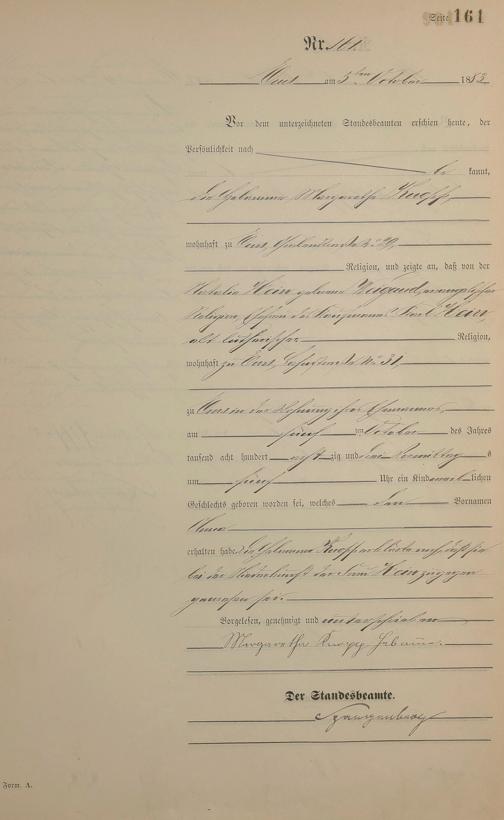 Seite 161
Nr. 161
am 5ten October 1883
Vor dem unterzeichneten Standesbeamten erschien heute, der
Persönlichkeit nach
be kannt,
die Hebamme Margarethe Knopp,
wohnhaft zu
Religion, und zeigte an, daß von der
Natalie Hein geborene Weigand, evangelischer
Religion, Ehefrau des Kaufmanns Karl Hein
alt lutherischer Religion,
wohnhaft zu
zu in der Wohnung ihres Ehemannes,
am fünf ten October des Jahres
tausend acht hundert acht zig und drei Vormittags
um fünf Uhr ein Kind weiblichen
Geschlechts geboren worden sei, welches den Vornamen
erhalten habe. Die Hebamme Knopp erklärte noch, daß sie
bei der Niederkunft der Frau Hein zugegen
gewesen sei.
Vorgelesen, genehmigt und unterschrieben
Margaretha Knopp Hebamme.
Der Standesbeamte.
Spangenberg
Form. A.